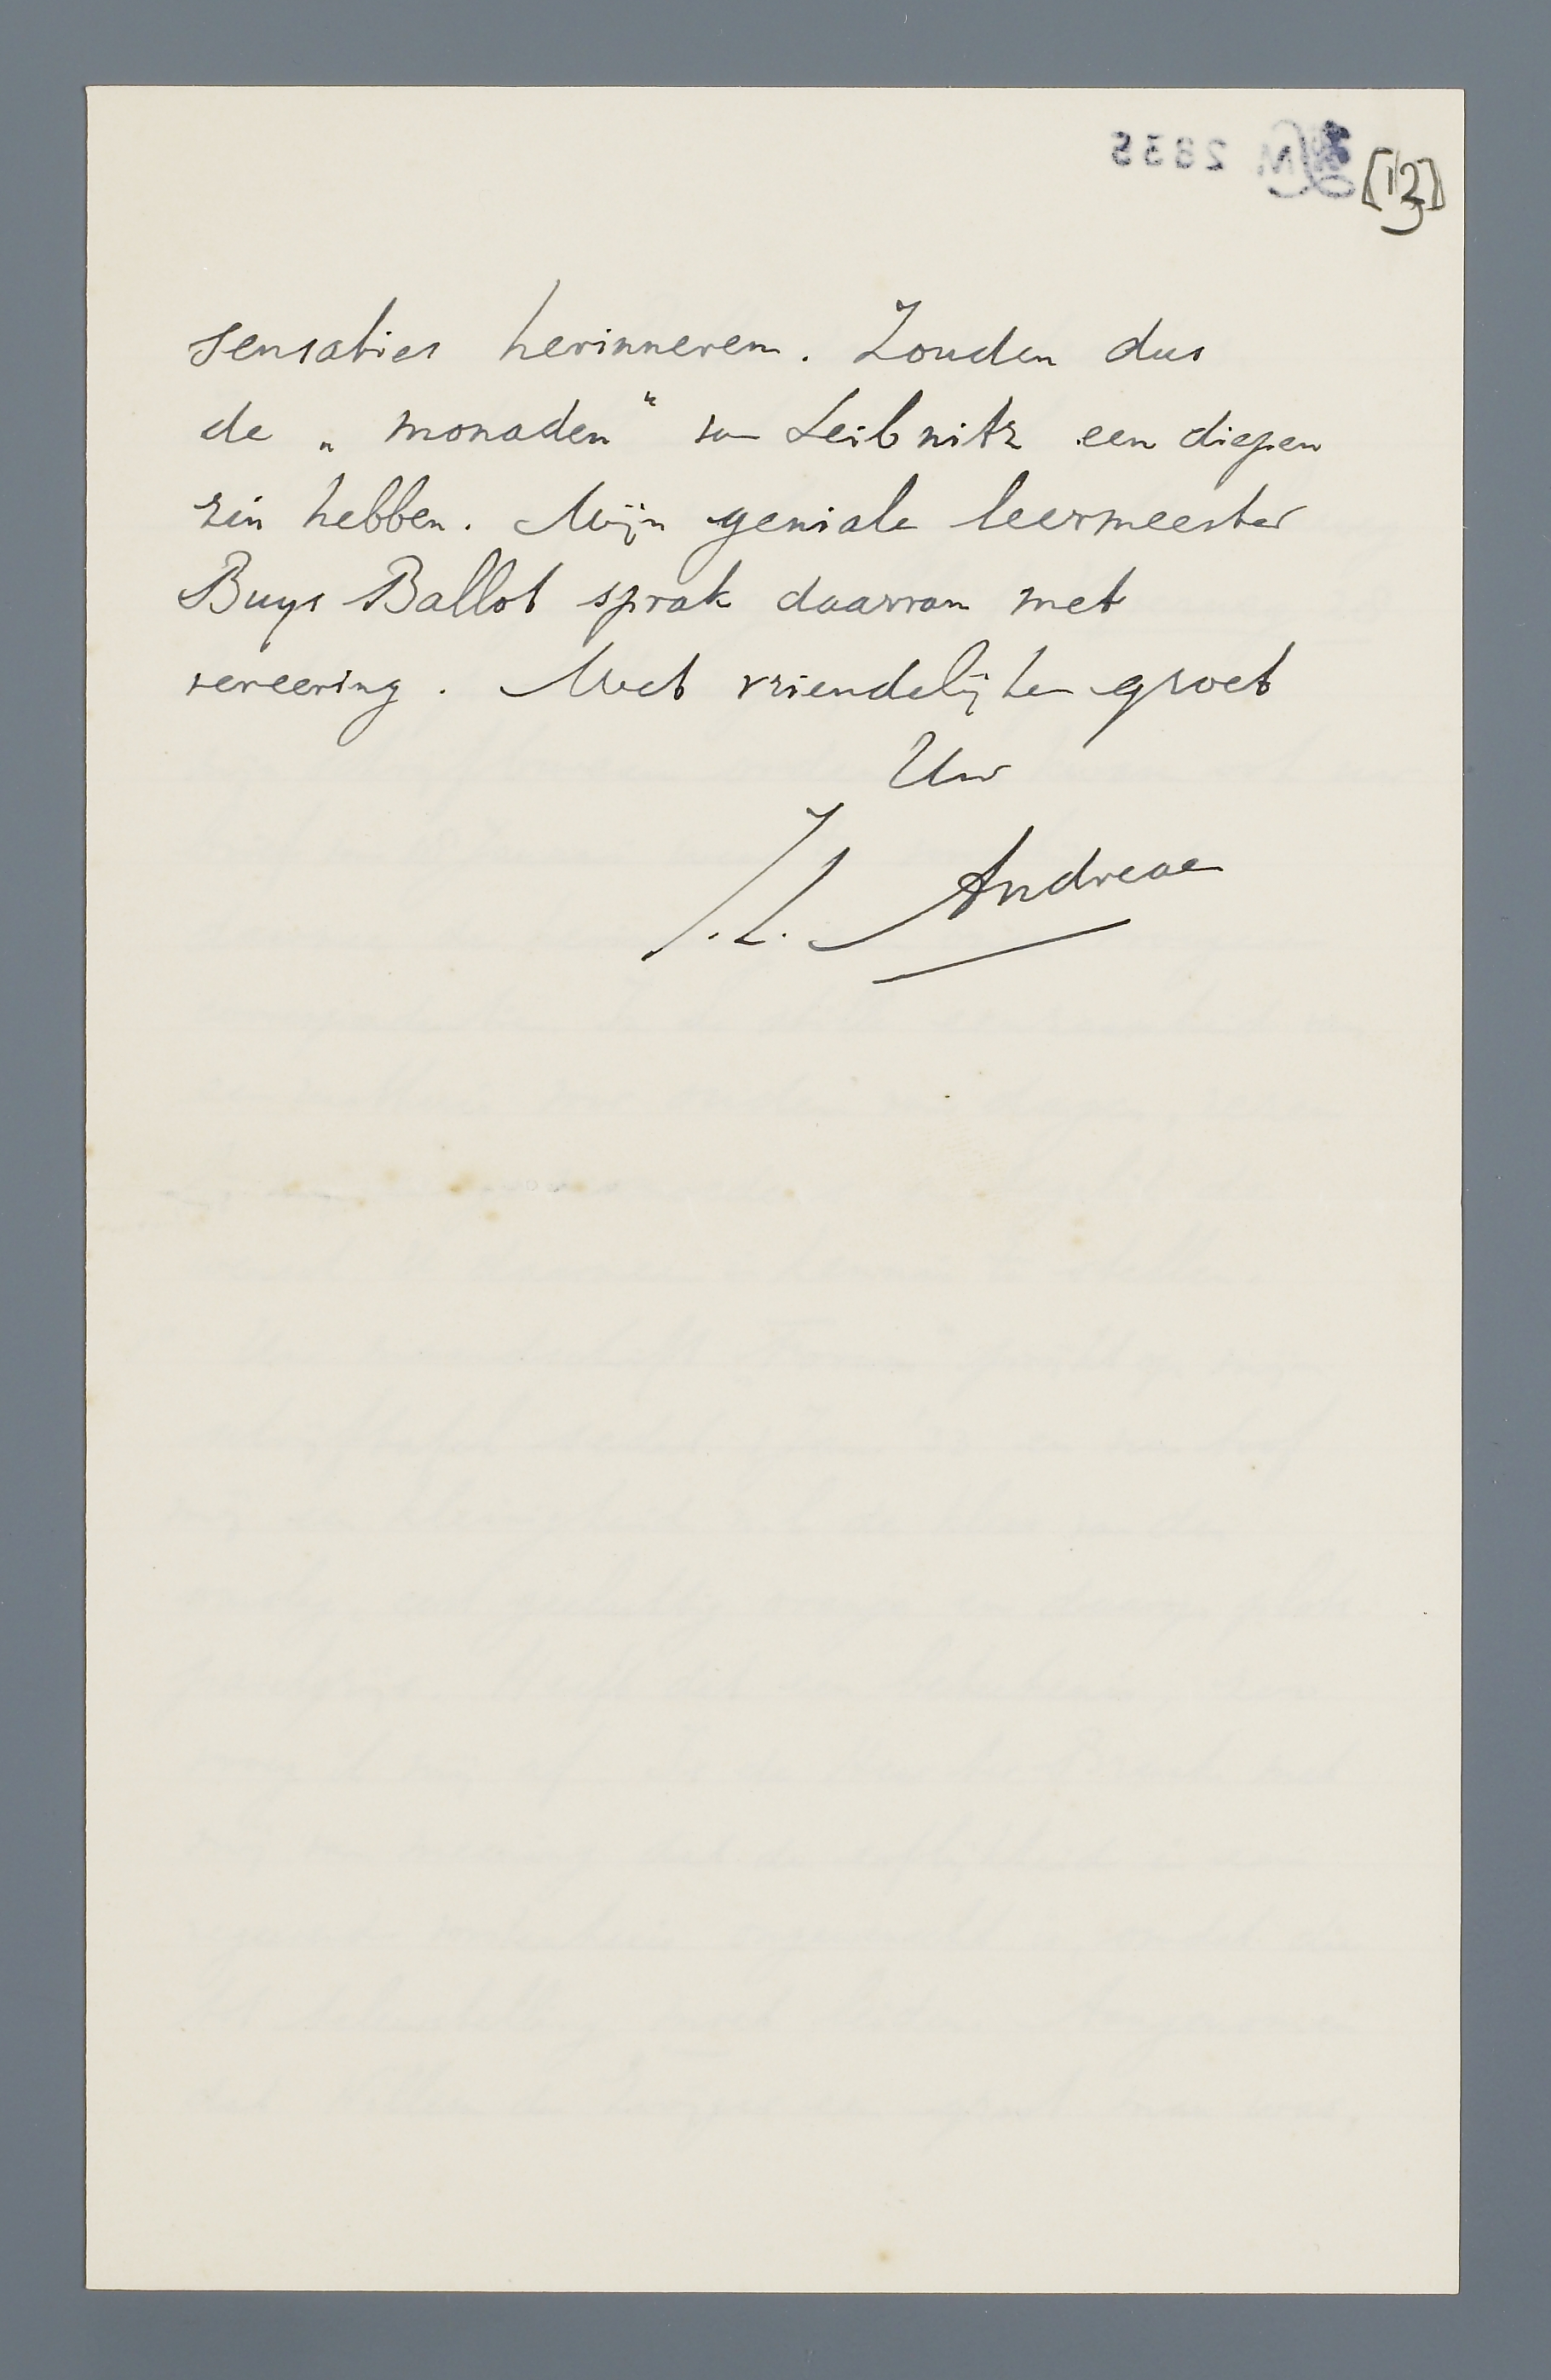 [13]
sensaties herinneren. Zouden dus
de „monaden“ van Leibnitz een diepen
zin hebben. Mijn geniale leermeester
Buys Ballot sprak daarvan met
vereering. Met vriendelijken groet
Uw
J.L. Andreae